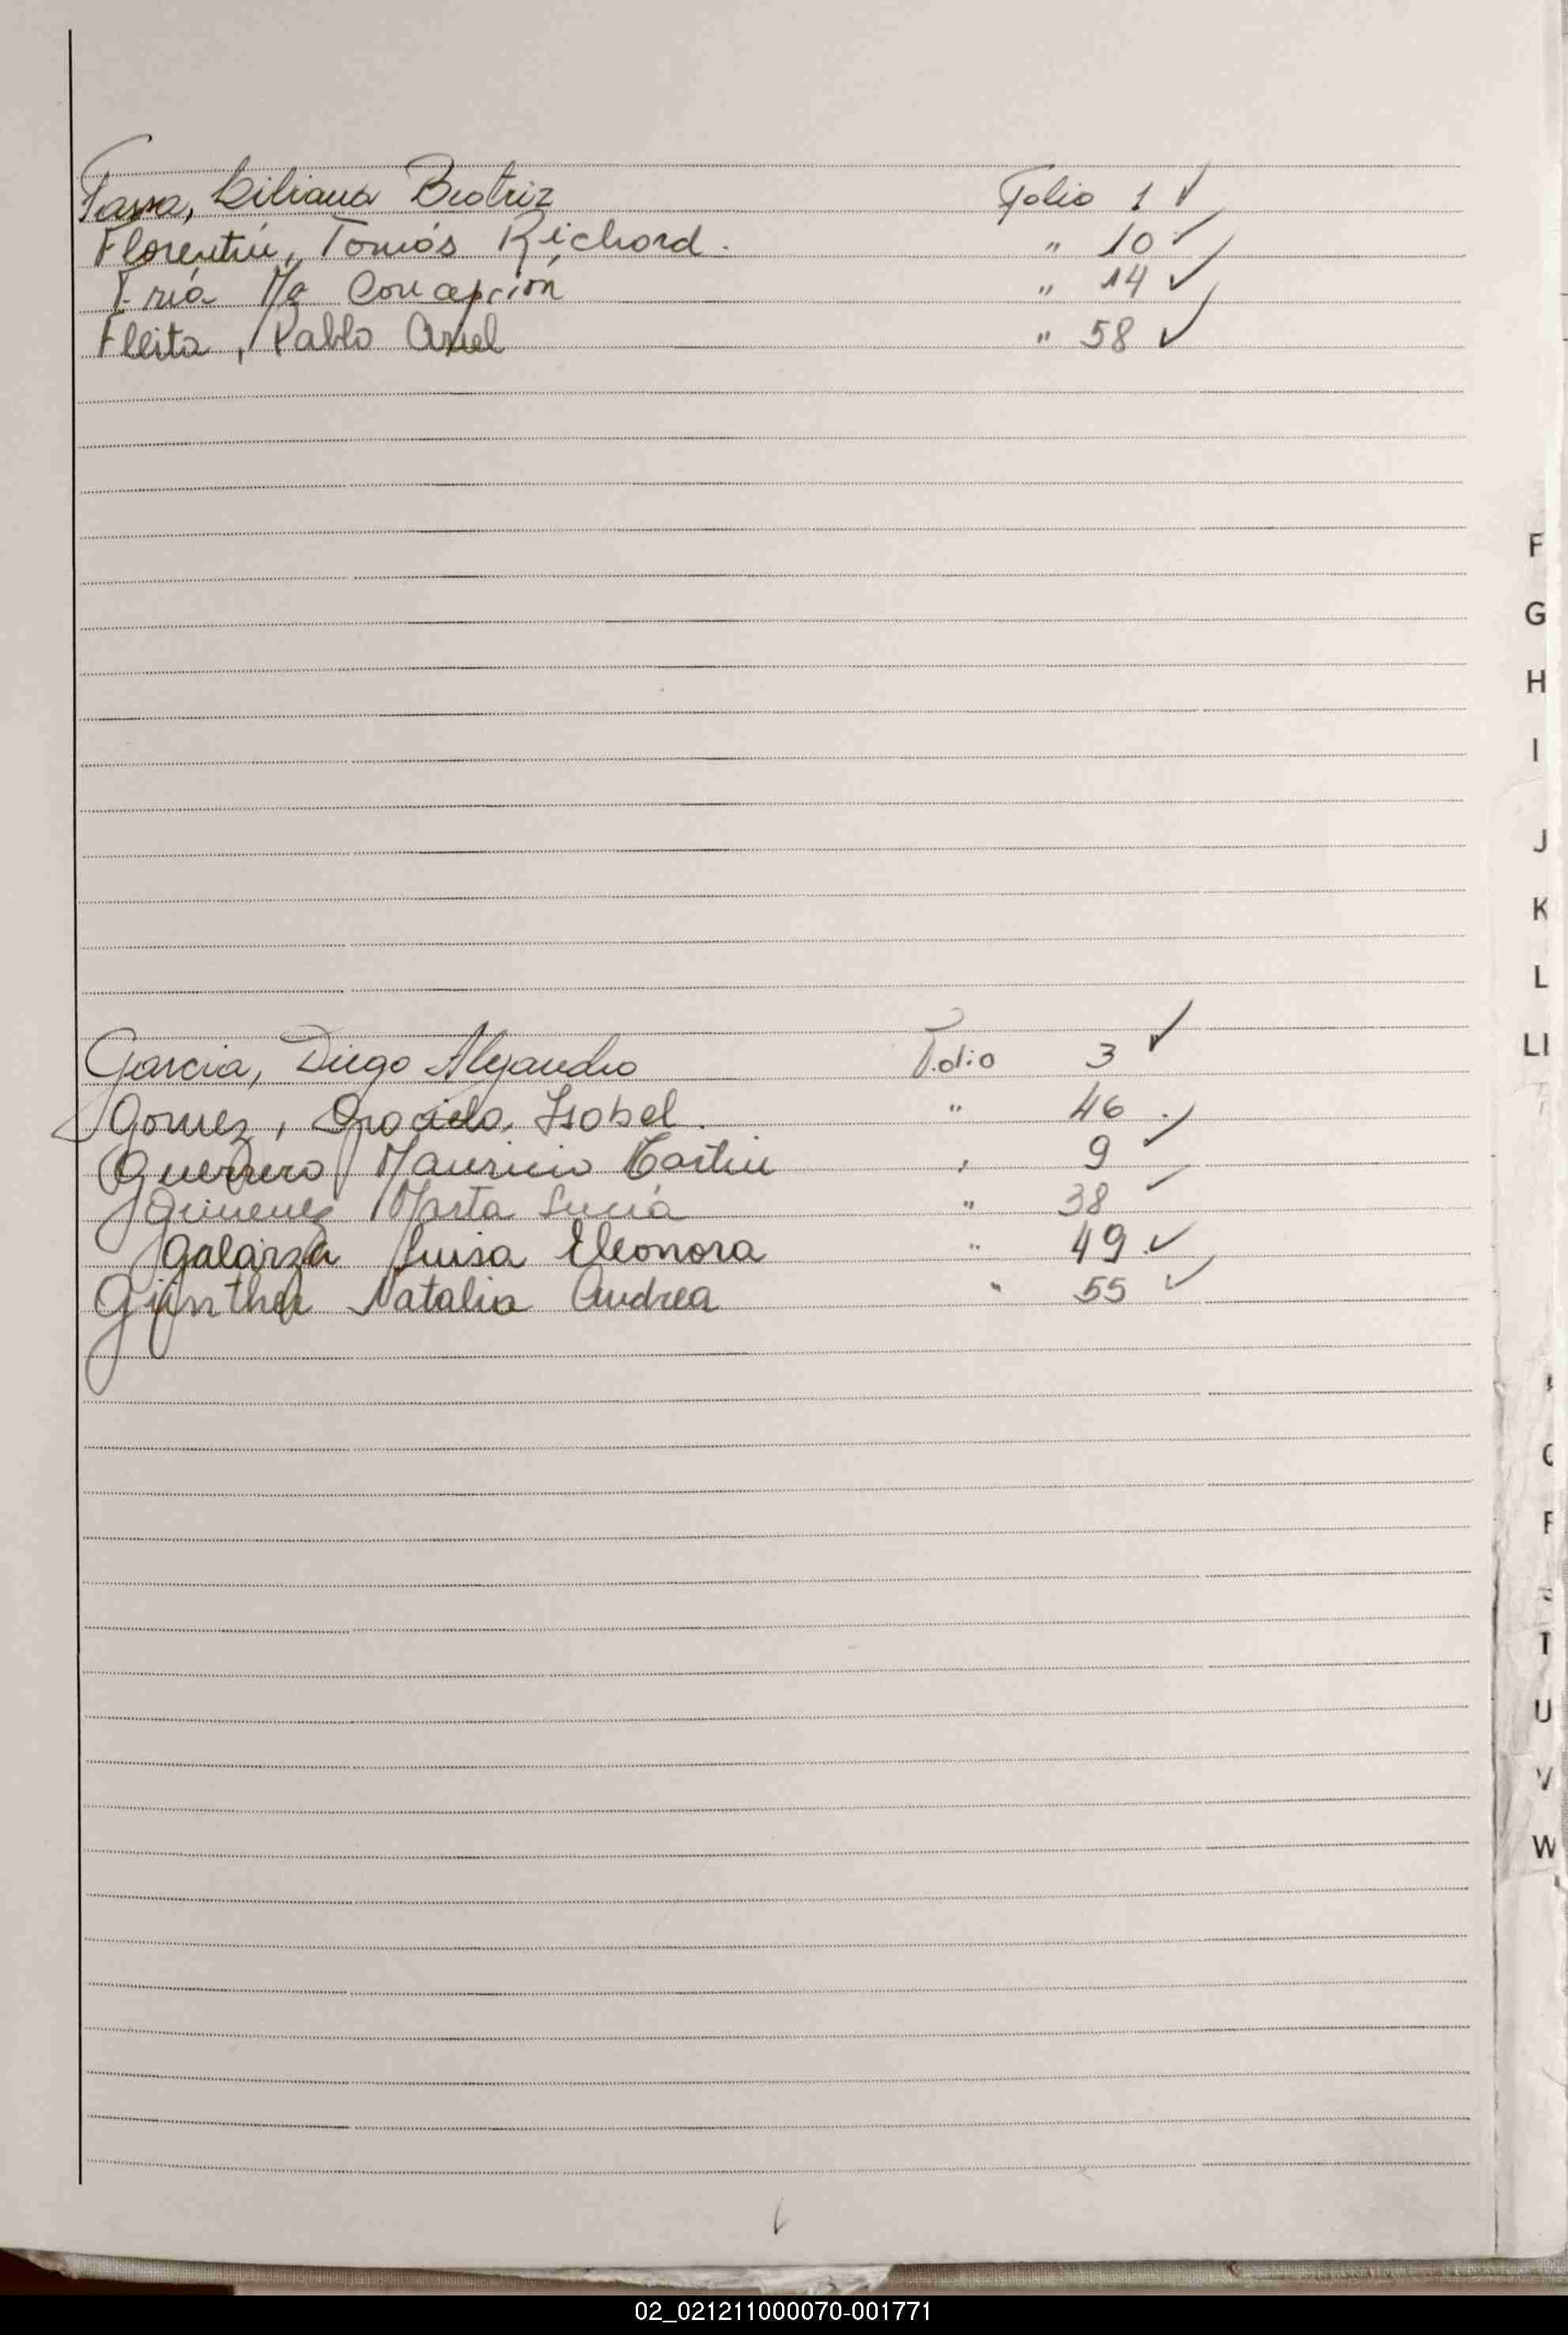 Fassa, Liliana Beatriz Folio 1 ✓
Florentín, Tomás Richard. " 10 ✓
Fría Ma Concepción " 14 ✓
Fleita, Pablo Ariel " 58 ✓
García, Diego Alejandro Folio 3 ✓
Gomez, Graciela Isabel. " 46 ✓
Guerrero Mauricio Martin " 9 ✓
Gimenez Marta Lucía " 38 ✓
Galarza Luisa Eleonora " 49 ✓
Günther Natalia Andrea " 55 ✓
F
G
H
I
J
K
L
Ll
T
U
V
W
02_021211000070-001771